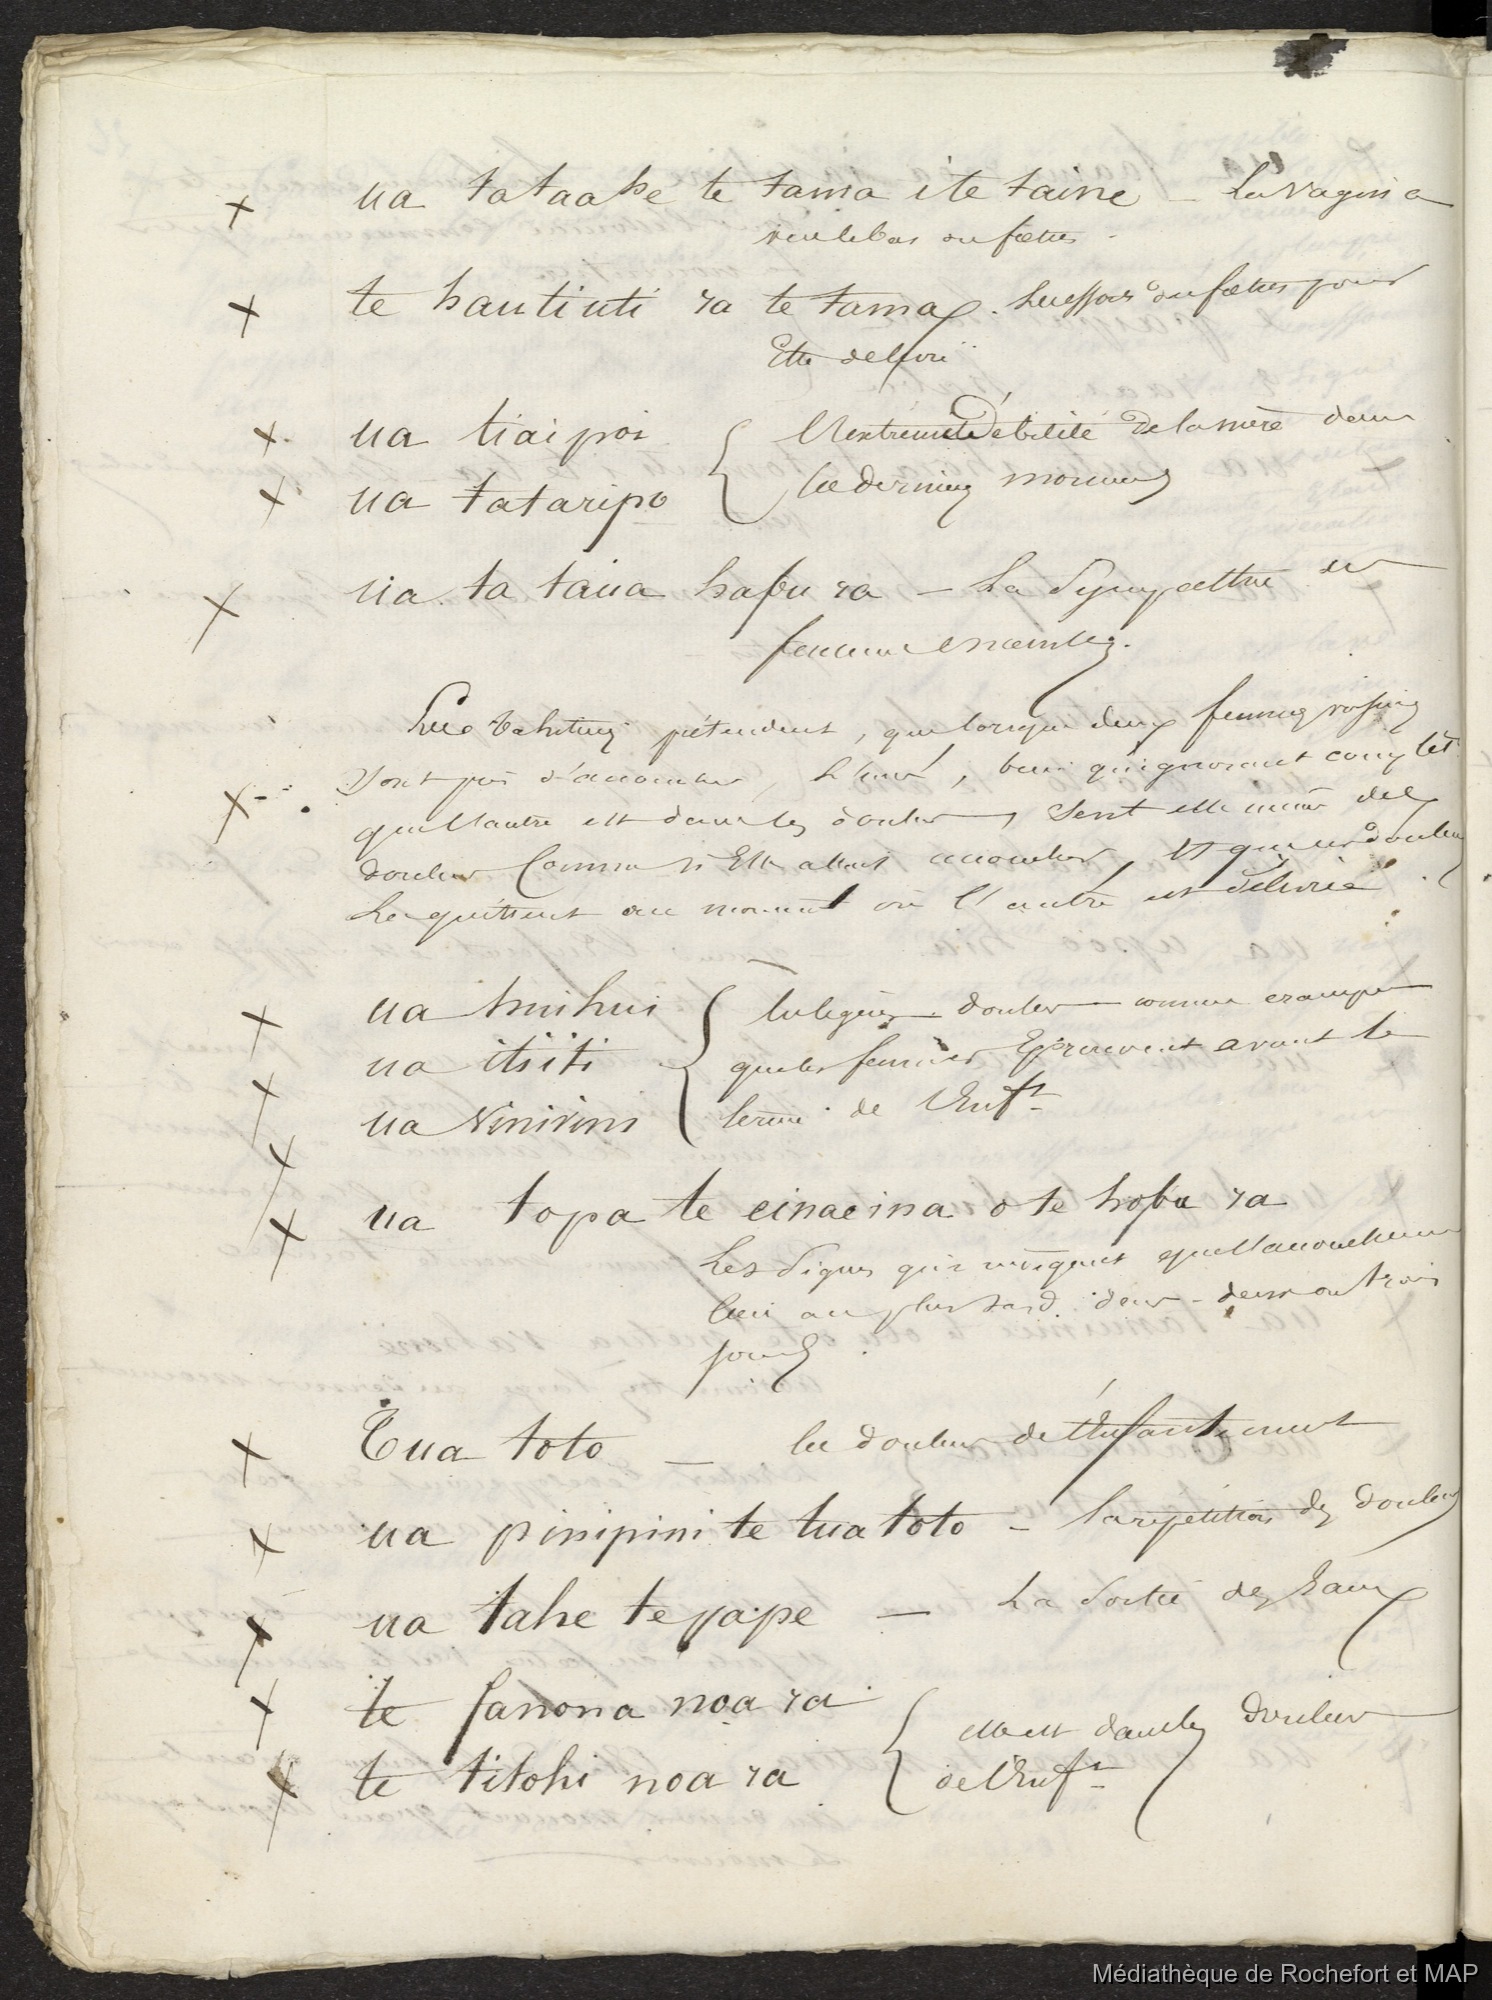 ua tataahe te tama i te taine — Le vagin a
vers le bas du fœtus
te hautiuti ra te tama. Les efforts du fœtus pour
Etre delivré
ua tiaipoi
L'extreme Debilité de la mère dans
les derniers moments
ua tataripo
ua ta taua hapu ra — La Sympathie
femmes enceintes.
Les tahitiens prétendent, que lorsque deux femmes voisines
sont près d'accoucher, l'une, bien qu'ignorant complèt
que l'autre est dans les douleurs, sent elle même des
douleurs Comme si Elle allait accoucher, et que ces douleurs
La quittent au moment où l'autre est délivrée
ua huihui
Les légères douleurs comme crampes
ua itiiti
que les femmes Eprouvent avant le
ua vinivini
terme de l'Enft
ua topa te einaeina o te hopu ra
Les Signes qui indiquent que l'accouchement
lieu au plus tard dans deux ou trois
jours
Tua toto — les douleurs de l'Enfantement
ua pinipini te tua toto — la répétition des douleurs
ua tahe te pape — La Sortie des Eaux
te fanona noa ra
elle est dans les douleurs
te titohi noa ra
de l'Enft
Médiathèque de Rochefort et MAP